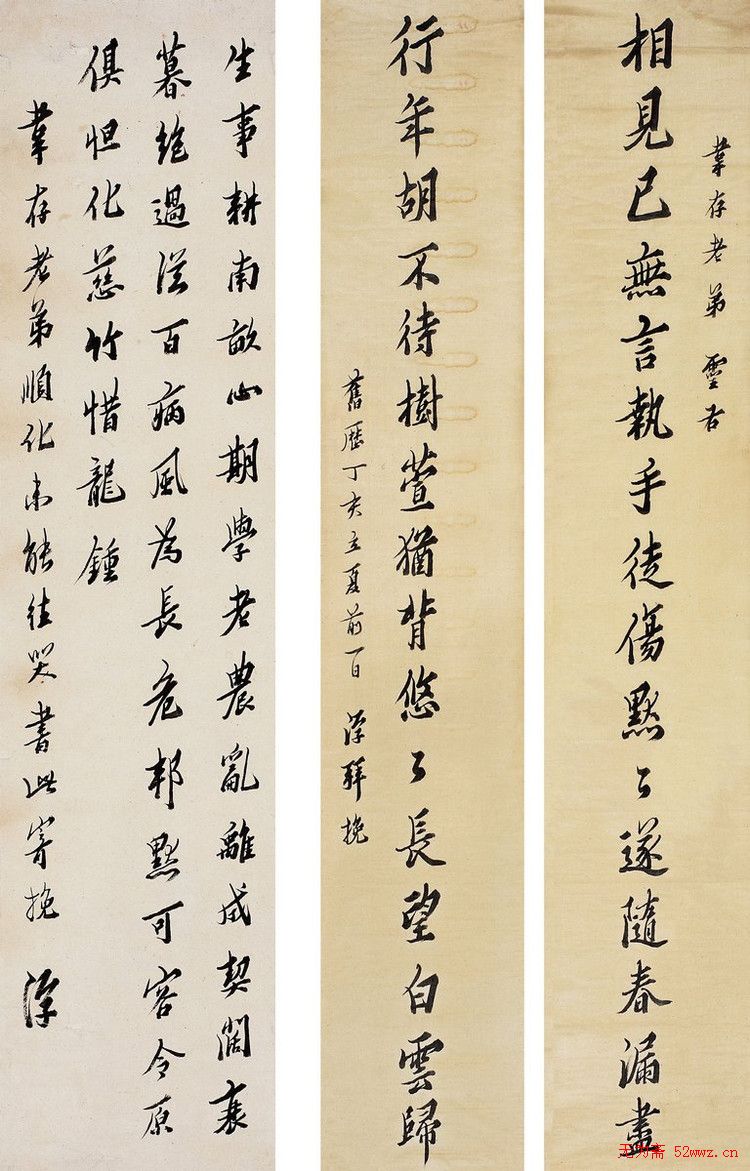 葦存老弟 靈右
相見已無言執手徒傷默々遂隨春漏盡
行年胡不待樹萱猶背悠々長望白雲歸
舊歷丁亥立夏前一日 浮拜挽
生事耕南畝心期學老農亂離成契闊衰
暮絕過從百病風為長危邦默可容令原
俱怛化慈竹惜龍鍾
葦存老弟順化未能往哭書此寄挽 浮
无为斋 52wwz.cn